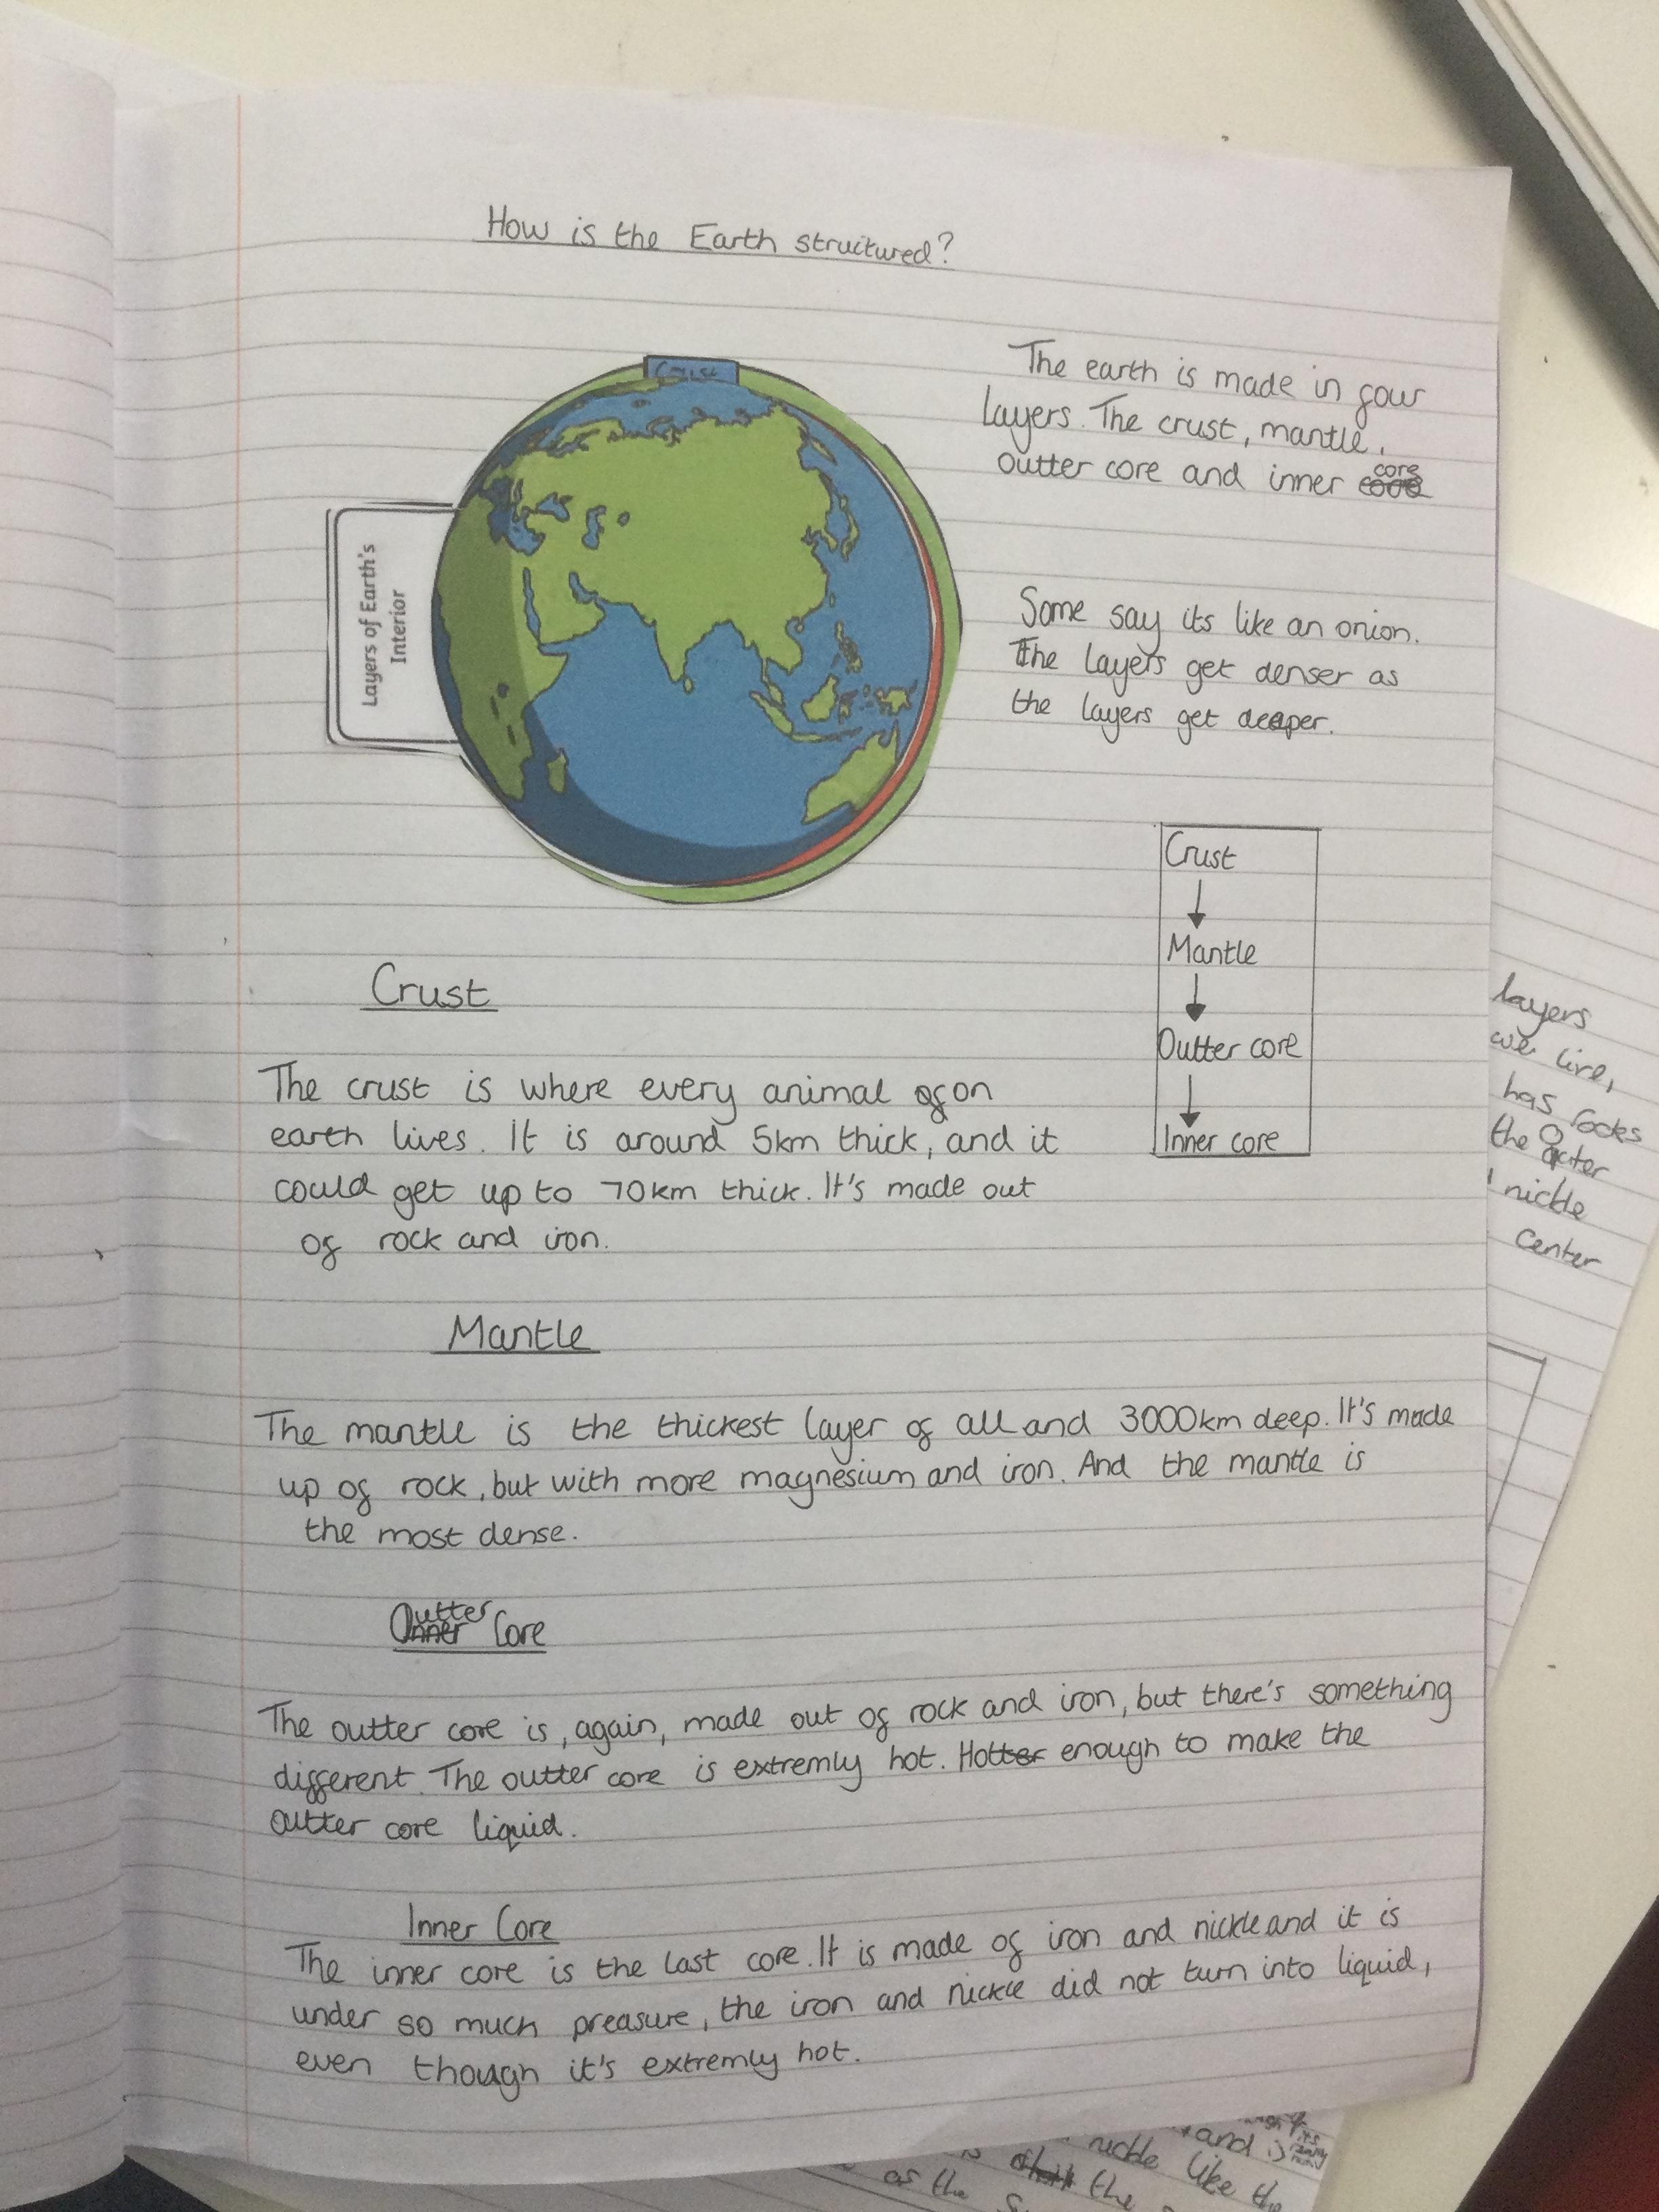 How is the Earth structured?
Crust
Layers of Earth's
Interior
The earth is made in four
layers. The crust, mantle,
outter core and inner core
Some say its like an onion.
The layers get denser as
the layers get deeper.
Crust
Mantle
Outter core
Inner core
Crust
The crust is where every animal on
earth lives. It is around 5km thick, and it
could get up to 70km thick. It's made out
of rock and iron.
Mantle
The mantle is the thickest layer of all and 3000km deep. It's made
up of rock, but with more magnesium and iron. And the mantle is
the most dense.
Outter Core
The outter core is, again, made out of rock and iron, but there's something
different. The outter core is extremly hot. Hot enough to make the
outter core liquid.
Inner Core
The inner core is the last core. It is made of iron and nickle and it is
under so much preasure, the iron and nickle did not turn into liquid,
even though it's extremly hot.
layers
we live,
has rocks
the outer
nickle
center
and is
nickle like the
the
as the